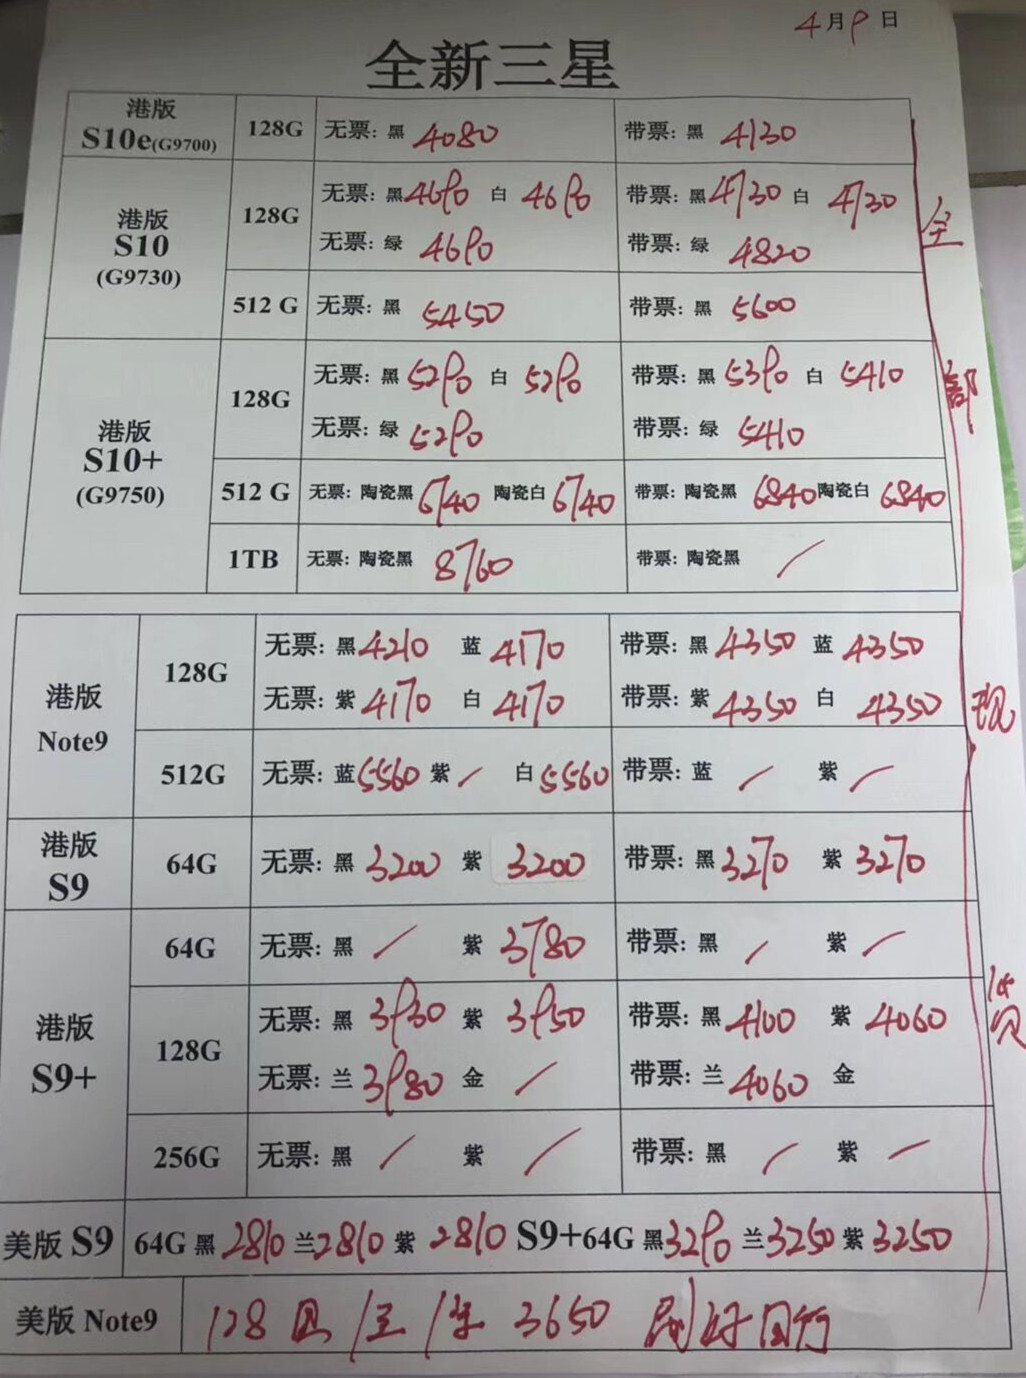 4月9日
全新三星
港版 S10e(G9700) 128G 无票: 黑 4080 带票: 黑 4130
港版 S10 (G9730) 128G 无票: 黑 4690 白 4690 带票: 黑 4730 白 4730
无票: 绿 4690 带票: 绿 4820
512 G 无票: 黑 5450 带票: 黑 5600
港版 S10+ (G9750) 128G 无票: 黑 5290 白 5290 带票: 黑 5390 白 5410
无票: 绿 5290 带票: 绿 5410
512 G 无票: 陶瓷黑 6740 陶瓷白 6740 带票: 陶瓷黑 6840 陶瓷白 6840
1TB 无票: 陶瓷黑 8760 带票: 陶瓷黑 /
港版 Note9 128G 无票: 黑 4210 蓝 4170 带票: 黑 4350 蓝 4350
无票: 紫 4170 白 4170 带票: 紫 4350 白 4350
512G 无票: 蓝 5560 紫 / 白 5560 带票: 蓝 / 紫 /
港版 S9 64G 无票: 黑 3200 紫 3200 带票: 黑 3270 紫 3270
港版 S9+ 64G 无票: 黑 / 紫 3780 带票: 黑 / 紫 /
128G 无票: 黑 3930 紫 3950 带票: 黑 4100 紫 4060
无票: 兰 3980 金 / 带票: 兰 4060 金
256G 无票: 黑 / 紫 / 带票: 黑 / 紫 /
美版 S9 64G 黑 2810 兰 2810 紫 2810 S9+64G 黑 3290 兰 3250 紫 3250
美版 Note9 128 3650
全部现货